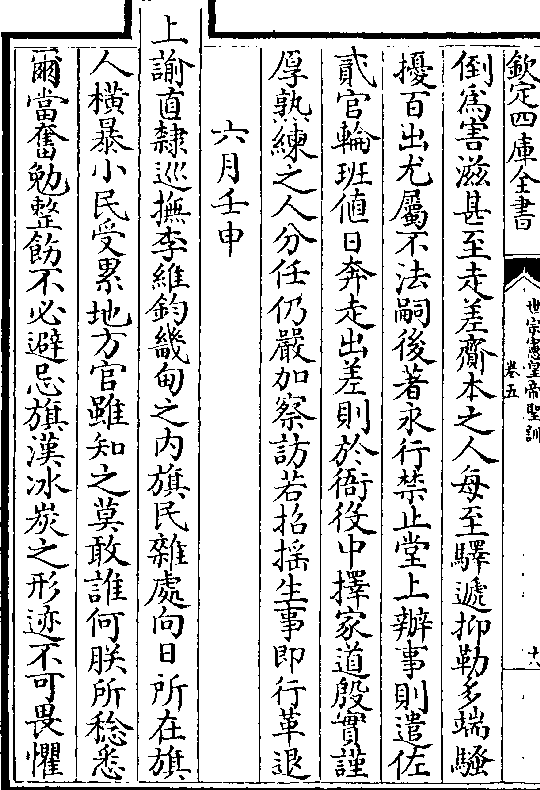 欽定四庫全書
世宗憲皇帝聖訓
卷五
十六
倒為害滋甚至走差齎本之人每至驛遞抑勒多端騷
擾百出尤屬不法嗣後著永行禁止堂上辦事則遣佐
貳官輪班值日奔走出差則於衙役中擇家道殷實謹
厚熟練之人分任仍嚴加察訪若招搖生事即行革退
六月壬申
上諭直隸巡撫李維鈞畿甸之内旗民雜處向日所在旗
人橫暴小民受累地方官雖知之莫敢誰何朕所稔悉
爾當奮勉整飭不必避忌旗漢冰炭之形迹不可畏懼